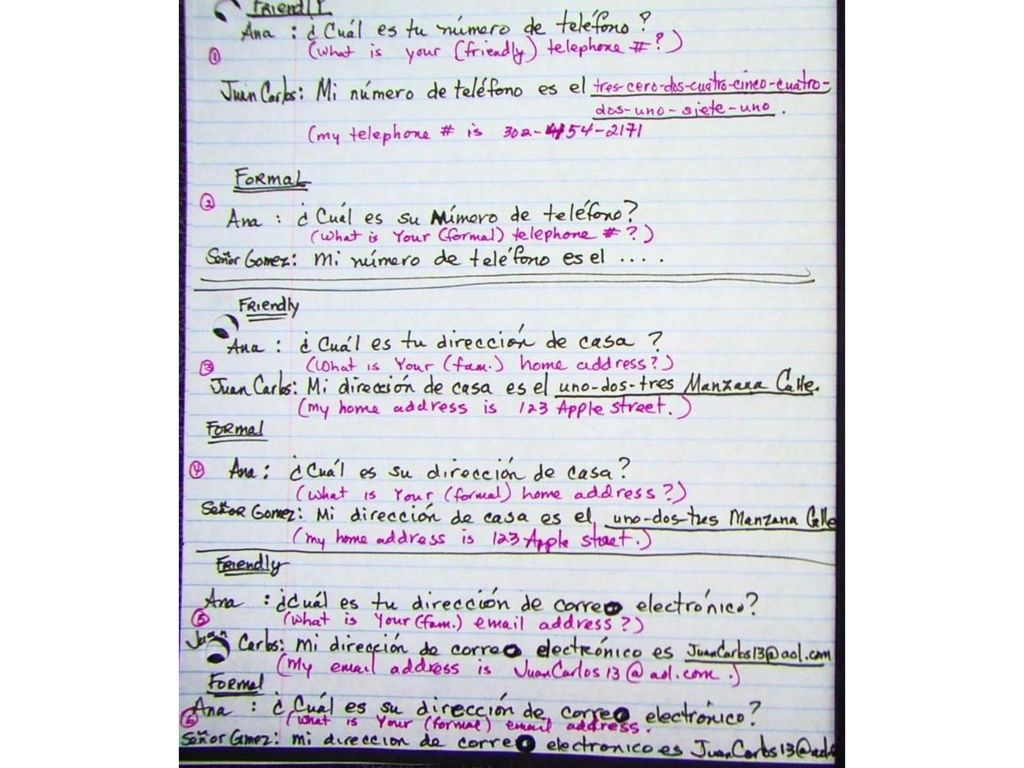 Friendly
Ana : ¿Cuál es tu número de teléfono?
① (What is your (friendly) telephone #?)
Juan Carlos: Mi número de teléfono es el tres-cero-dos-cuatro-cinco-cuatro-
dos-uno-siete-uno.
(my telephone # is 302-454-2171
Formal
② Ana : ¿Cuál es su número de teléfono?
(What is Your (formal) telephone #?)
Señor Gomez: Mi número de teléfono es el ....
Friendly
Ana : ¿Cuál es tu dirección de casa ?
③ (What is Your (fam.) home address?)
Juan Carlos: Mi dirección de casa es el uno-dos-tres Manzana Calle.
(my home address is 123 Apple street.)
Formal
④ Ana : ¿Cuál es su dirección de casa?
(What is Your (formal) home address?)
Señor Gomez: Mi dirección de casa es el uno-dos-tres Manzana Calle
(my home address is 123 Apple street.)
Friendly
Ana : ¿Cuál es tu dirección de correo electrónico?
⑤ (What is Your (fam.) email address?)
Juan Carlos: Mi dirección de correo electrónico es JuanCarlos13@aol.com
(My email address is JuanCarlos13@aol.com.)
Formal
Ana : ¿Cuál es su dirección de correo electrónico?
⑥ (What is Your (formal) email address.
Señor Gomez: mi direccion de correo electronico es JuanCarlos13@aol